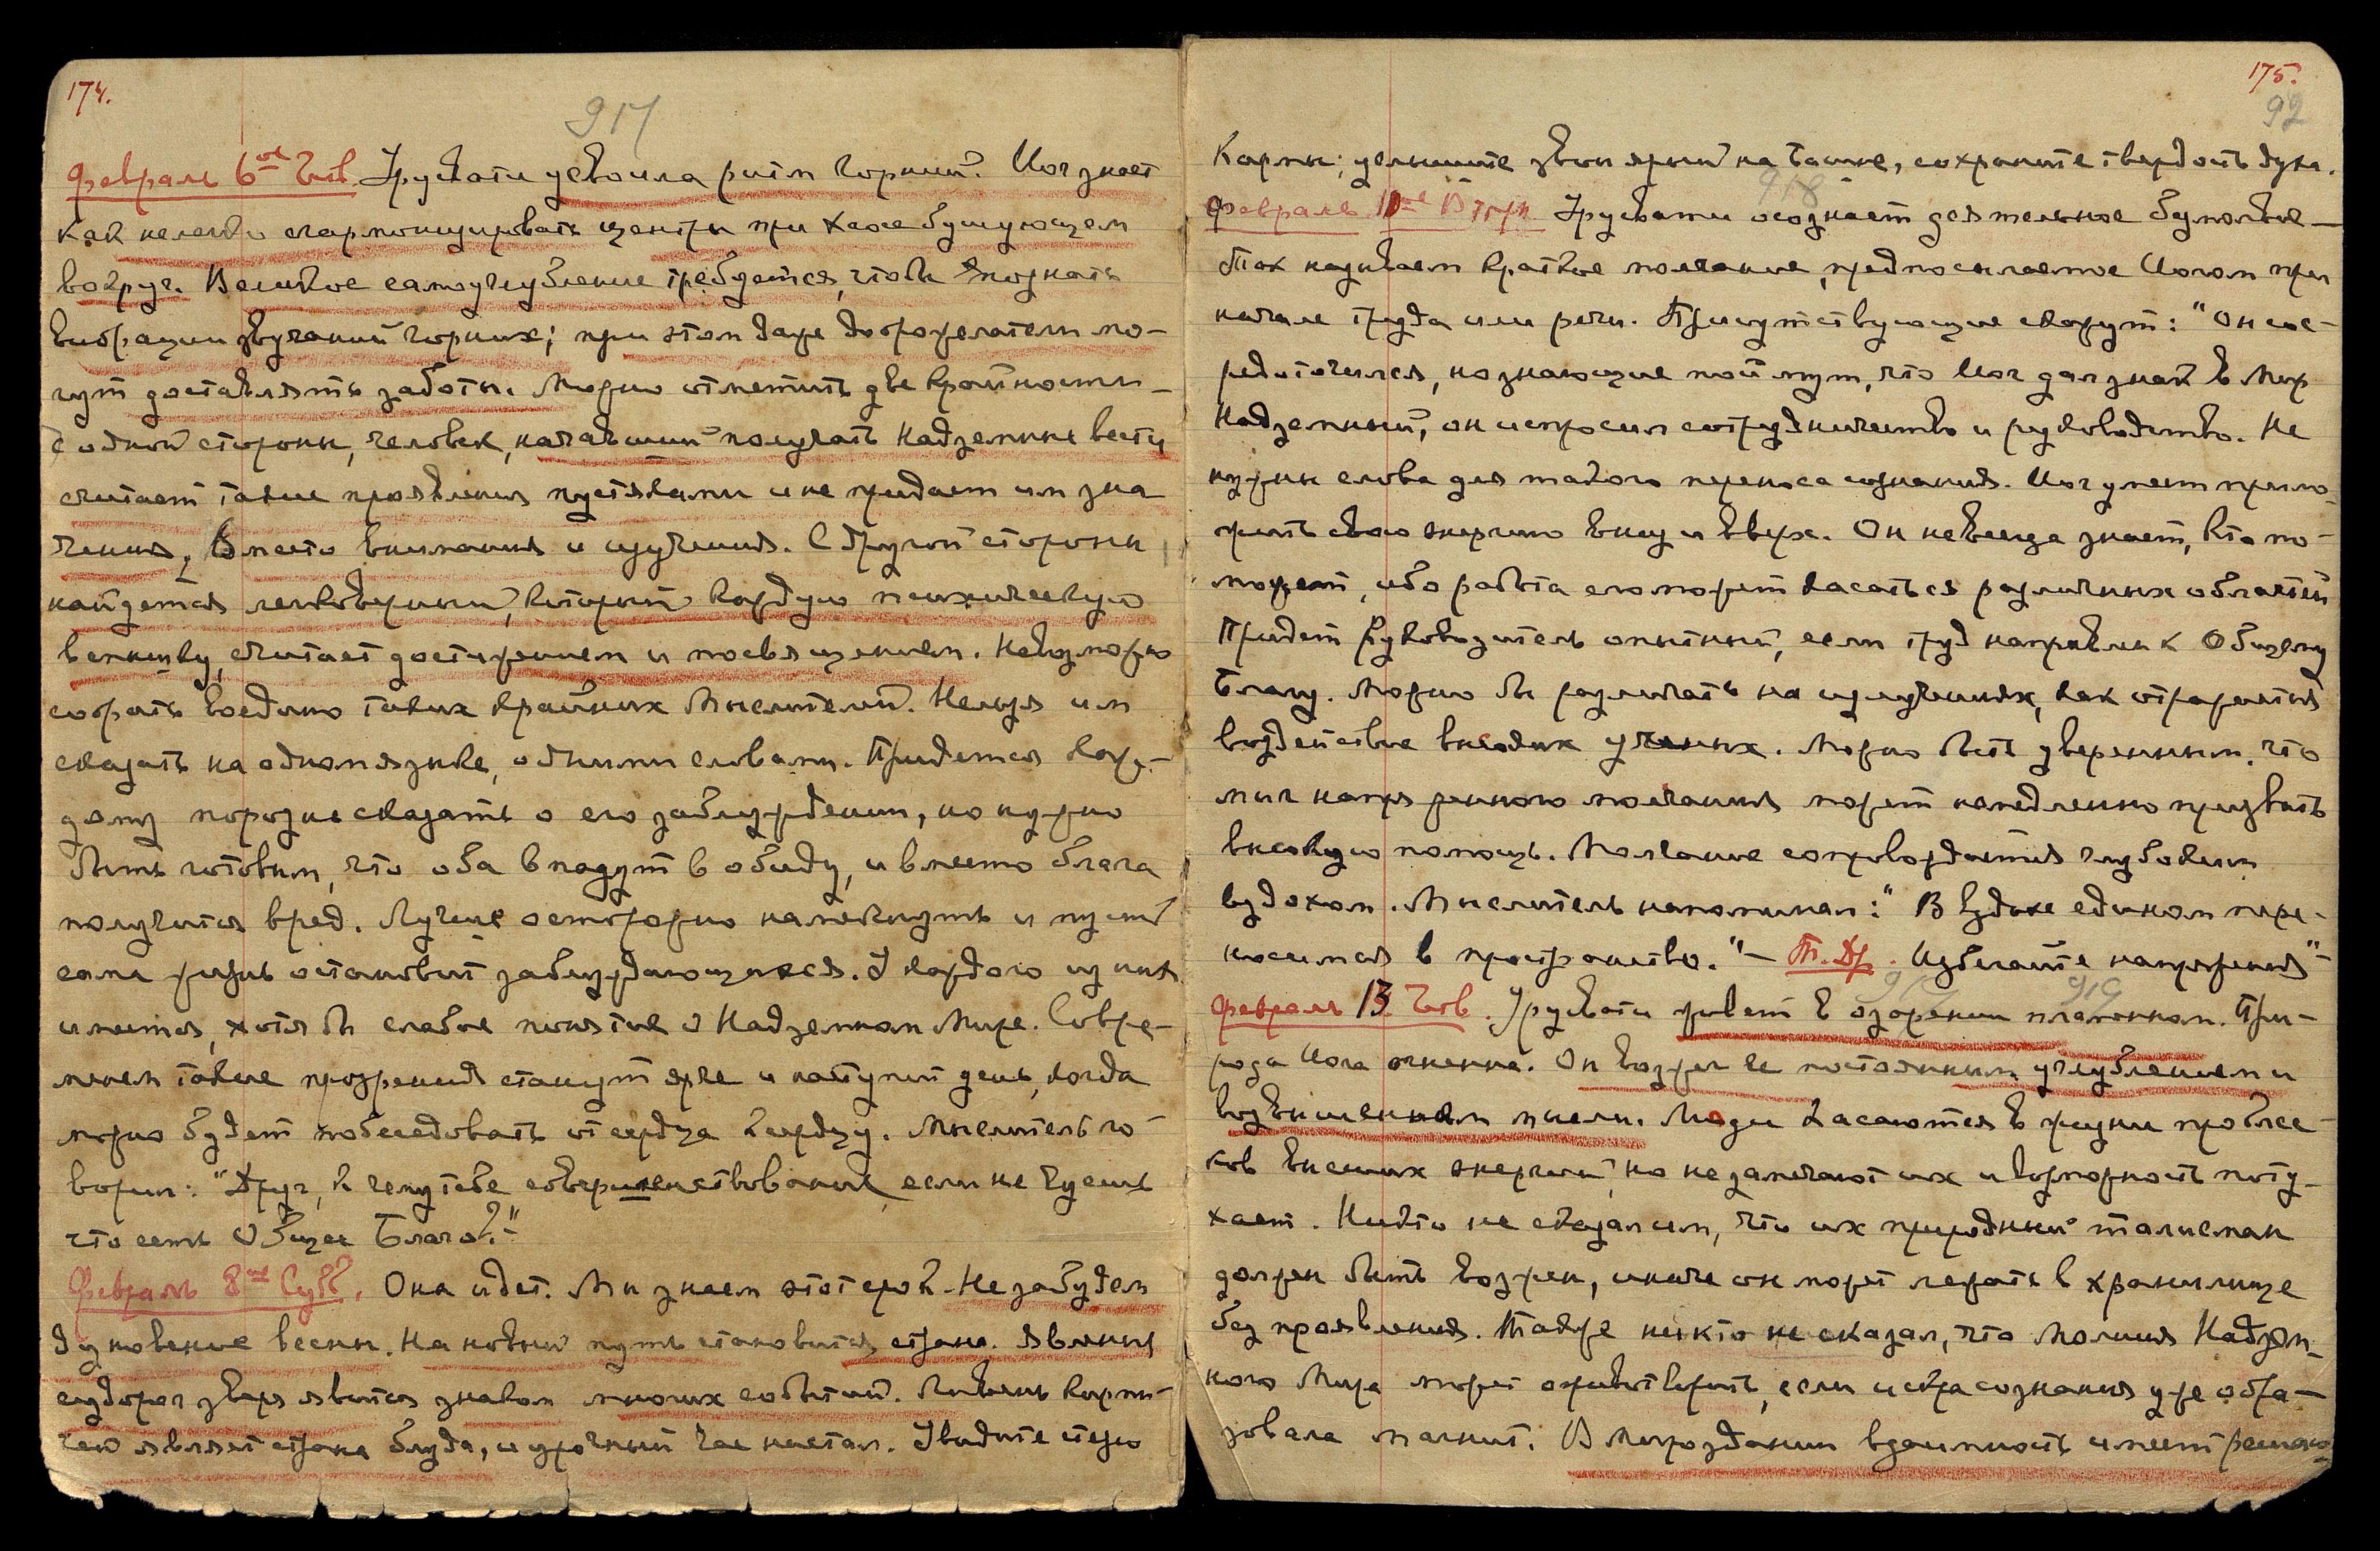 174.
917
Февраль 6ое Четв. Урусвати усвоила ритм горний. Йог знает
как нелегко сгармонизировать центры при хаосе бушующем
вокруг. Великое самоуглубление требуется, чтобы познать
вибрации звучаний горних; при этом даже доброжелатели мо-
гут доставлять заботы. Можно отметить две крайности —
с одной стороны, человек, начавший получать Надземные вести,
считает такие проявления пустяками и не придает им зна
чения, вместо внимания и изучения. С другой стороны
найдется легковерный, который каждую психическую
вспышку, считает достижением и посвящением. Невозможно
собрать воедино таких крайних Мыслителей. Нельзя им
сказать на одном языке, одними словами. Придется каж-
дому порознь сказать о его заблуждении, но нужно
быть готовым, что оба впадут в обиду, и вместо блага
получится вред. Лучше осторожно намекнуть и пусть
сама жизнь остановит заблуждающихся. У каждого из них
имеется, хотя бы слабое понятие о Надземном Мире. Совре-
менем такие прозрения станут ярче и наступит день, когда
можно будет побеседовать от сердца к сердцу. Мыслитель го-
ворил: "Друг, к чему тебе совершенствование, если не чуешь
что есть Общее Благо?"
Февраль 8ое Субб. Она идет. Мы знаем этот срок. Не забудем
дуновение весны. На новый путь становится страна. Явления
судорог зверя явится знаком многих событий. Ливень кирпи-
чей являет страна блуда, и урочный час настал. Увидите стезю
175.
92
Кармы; услышите звон ярый на башне, сохраните твердость духа.
918
Февраль 11ое Вторн. Урусвати осознает деятельное безмолвие —
Так называем краткое молчание, предпосылаемое Йогом при
начале труда или речи. Присутствующие скажут: "Он сос-
редоточился, но знающие поймут, что Йог дал знак в Мир
Надземный, он испросил сотрудничество и руководство. Не
нужны слова для такого переноса сознания. Йог умеет прило-
жить свою энергию внизу и вверх. Он не всегда знает, кто по-
может, ибо работа его может касаться различных областей
Придет Руководитель опытный, если труд направлен к Общему
Благу. Можно бы различать на излучениях, как отражается
воздействие высоких ученых. Можно быть уверенным, что
миг напряженного молчания может немедленно призвать
высокую помощь. Молчание сопровождается глубоким
вздохом. Мыслитель напоминал: "В вздохе едином пере-
носимся в пространство." — Т. Др. Избегайте напряжения"
919
Февраль 13. Четв. Урусвати живет в озарении пламенном. При-
рода Йога огненна. Он возжег ее постоянным углублением и
возвышением мысли. Люди касаются в жизни проблес-
ков высших энергий, но не замечают их и возможность поту-
хает. Никто не сказал им, что их природный талисман
должен быть возжен, иначе он может лежать в хранилище
без проявления. Также никто не сказал, что Молния Надзем-
ного Мира может оживотворить, если искра сознания уже обра-
зовала магнит. В Мироздании взаимность имеет решаю-